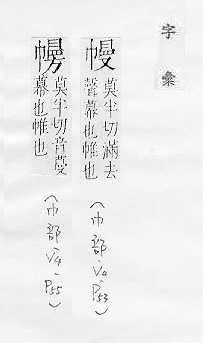 字彙
幔
莫半切滿去
聲幕也帷也
(巾部、V4、P53)
莫半切音蔓
幕也帷也
(巾部、V4、P55)